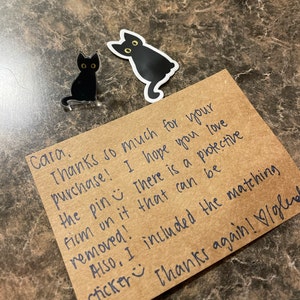 Cara,
Thanks so much for your
purchase! I hope you love
the pin☺ There is a protective
film on it that can be
removed!
Also, I included the matching
sticker☺
Thanks again! ♡